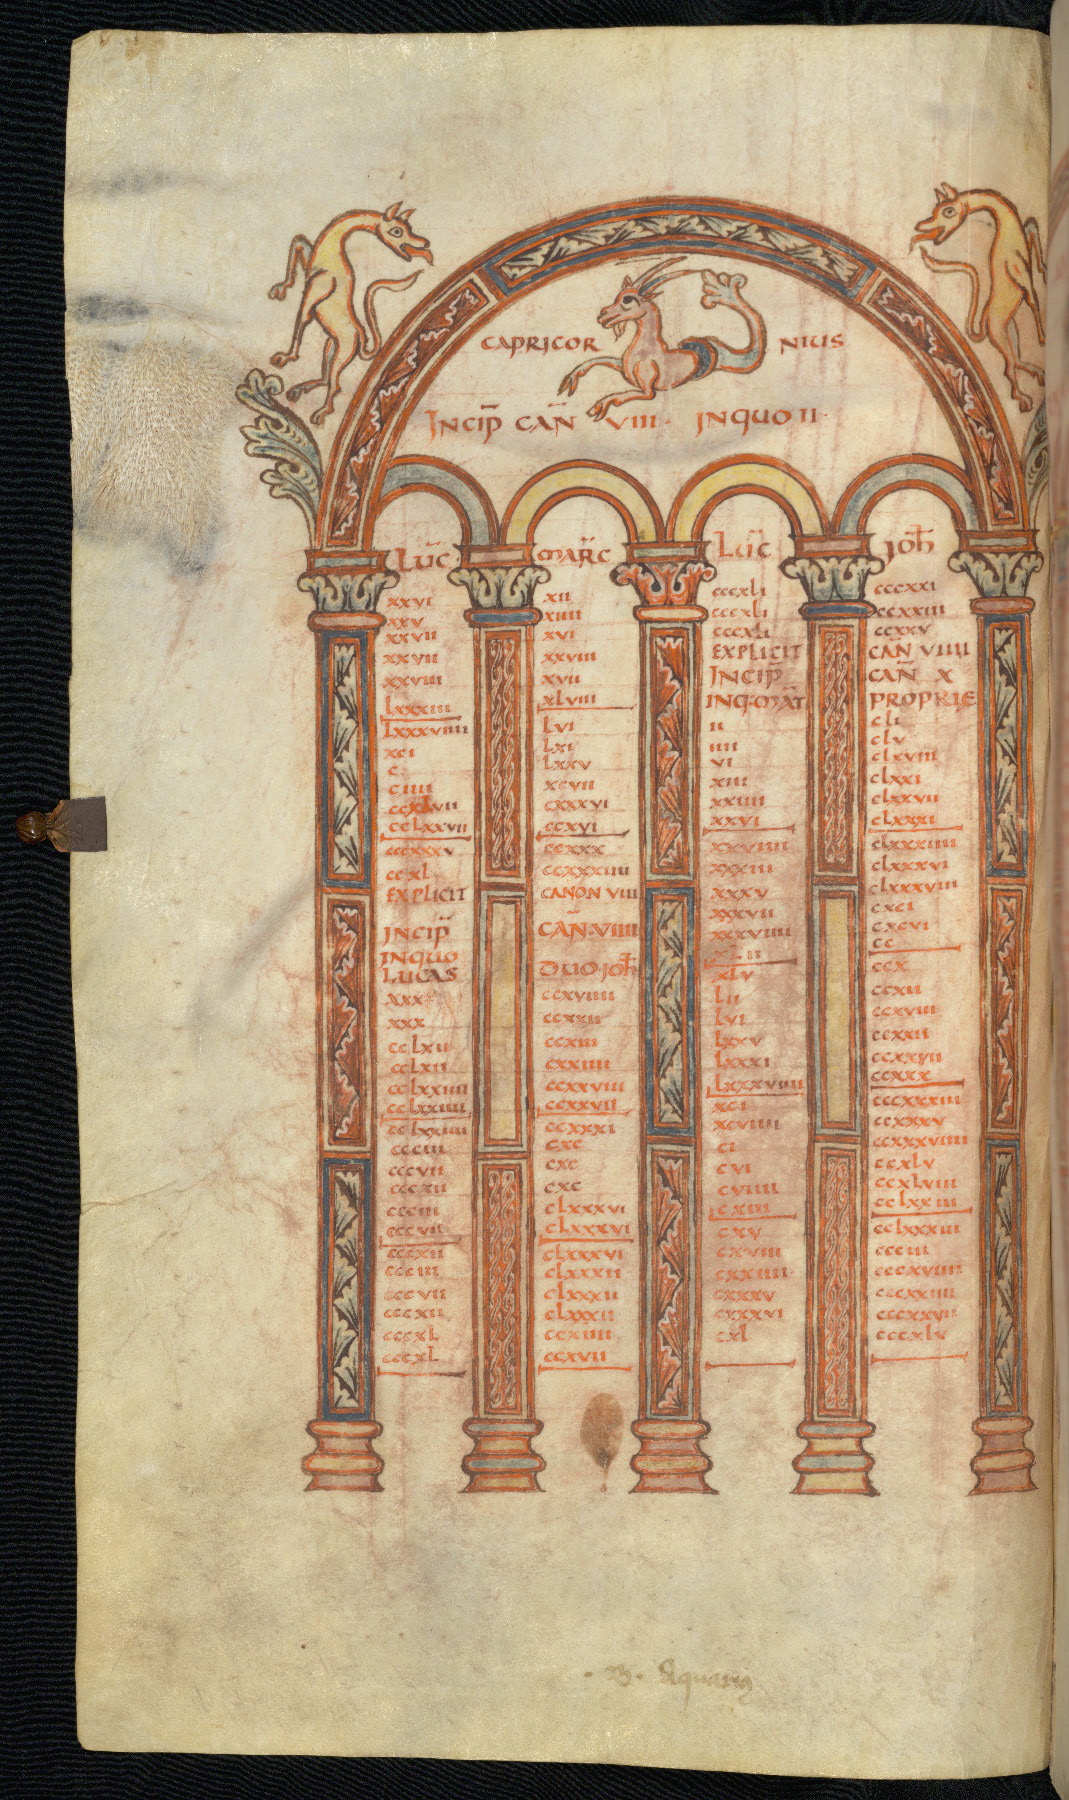 CAPRICOR NIUS
INCIP̄ CAÑ VIII· INQUO II·
LUC̄ MARC̄ LUC̄ IOH̄
xxvi xii cccxli cccxxi
xxv xiiii cccxli ccxxiii
xxvii xvi cccxli ccxxv
xxvii xxviii EXPLICIT CAÑ VIIII
xxviiii xvii INCIP̄ CAÑ X
lxxxiiii xlviii INQ·MAT̄ PROPRIE
lxxxviiii lvi ii cli
xci lxi iiii clv
c lxxv vi clxviii
ciiii xcvii xiii clxxi
cxxxvi xxiiii clxxvii
cclxxvii ccxvi xxvi clxxxi
cccxxxv ccxxx xxviiii clxxxiiii
ccxl ccxxxiiii xxxiii clxxxvi
EXPLICIT CANON VIII xxxv clxxxviii
xxxvii cxci
INCIP̄ CAÑ·VIIII xxxviiii cxcvi
INQUO cc
LUCAS DUO IOH̄ xlv ccx
ccxviiii lii ccxii
xxx ccxxii lvi ccxviii
cclxii ccxiii lxxv ccxxii
cclxii cxxiiii lxxxi ccxxvii
cclxxiiii ccxxviii lxxxviiii ccxxx
cclxxiiii ccxxvii xci cccxxxiii
cclxxiiii ccxxxi xcviiii ccxxxv
ccciii cxc ci ccxxxviiii
cccvii cxc cvi ccxlv
cccxii cxc cviiii ccxlviii
ccciii clxxxvi cxiii cclxxiii
cccvii clxxxvi cxv cclxxxiii
cccxii clxxxvi cxviii ccciii
ccciii clxxxii cxxiiii cccxviiii
cccvii clxxxii cxxxv cccxxiiii
cccxii clxxxii cxxxvi cccxxvii
cccxl ccxiiii cxl cccxlv
cccxl ccxvii
· B · Aquarig